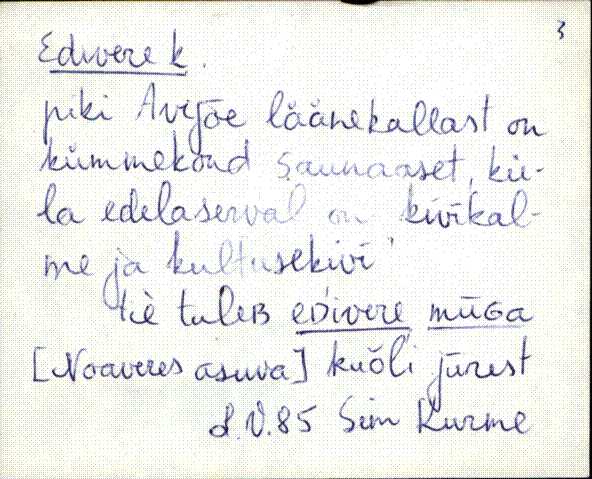 3
Edivere k.
piki Avijõe läänekallast on
kümmekond saunaaset, kü-
la edelaserval on kivikal-
me ja kultusekivi
tiè tuleB eDìvere müGa
[Noaveres asuva] kuõli jürest
8.V.85 Sim Kurme